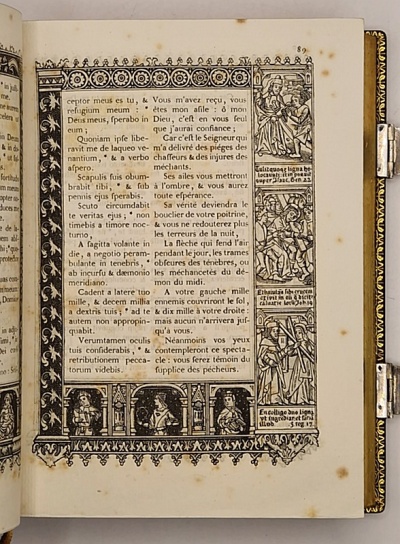 89
ceptor meus es tu, &
refugium meum : *
Deus meus, sperabo in
eum ;
Quoniam ipse libe-
ravit me de laqueo ve-
nantium, * & a verbo
aspero.
Scapulis suis obum-
brabit tibi, * & sub
pennis ejus sperabis.
Scuto circumdabit
te veritas ejus ; * non
timebis a timore noc-
turno ;
A sagitta volante in
die, a negotio peram-
bulante in tenebris, *
ab incursu & dæmonio
meridiano.
Cadent a latere tuo
mille, & decem millia
a dextris tuis ; * ad te
autem non appropin-
quabit.
Verumtamen oculis
tuis considerabis, * &
retributionem pecca-
torum videbis.
Vous m'avez reçu, vous
êtes mon asile : ô mon
Dieu, c'est en vous seul
que j'aurai confiance ;
Car c'est le Seigneur qui
m'a délivré des piéges des
chasseurs & des injures des
méchants.
Ses ailes vous mettront
à l'ombre, & vous aurez
toute espérance.
Sa vérité deviendra le
bouclier de votre poitrine,
& vous ne redouterez plus
les terreurs de la nuit,
La flèche qui fend l'air
pendant le jour, les trames
obscures des ténèbres, ou
les méchancetés du démon
du midi.
A votre gauche mille
ennemis couvriront le sol,
& dix mille à votre droite :
mais aucun n'arrivera jus-
qu'à vous.
Néanmoins vos yeux
contempleront ce specta-
cle : vous serez témoin du
supplice des pécheurs.
En colligo duo ligna
ut ingrediar et faciã
illud. 3 reg 17